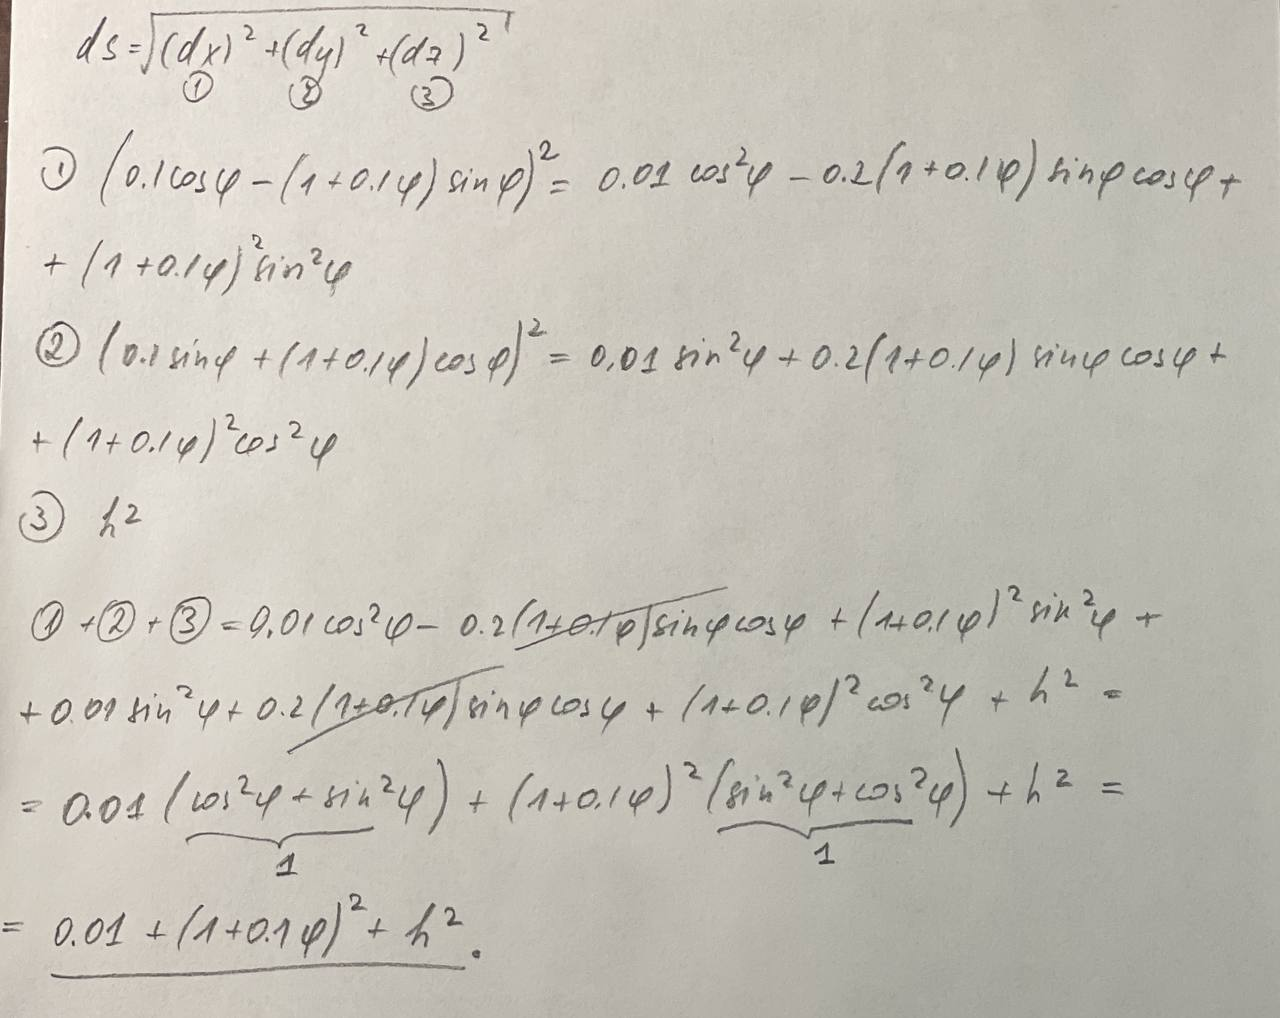 ds = √((dx)² + (dy)² + (dz)²)
① ② ③
① (0.1cosφ − (1+0.1φ) sinφ)² = 0.01 cos²φ − 0.2(1+0.1φ) sinφ cosφ +
+ (1+0.1φ)² sin²φ
② (0.1 sinφ + (1+0.1φ) cosφ)² = 0.01 sin²φ + 0.2(1+0.1φ) sinφ cosφ +
+ (1+0.1φ)² cos²φ
③ h²
① + ② + ③ = 0.01 cos²φ − 0.2(1+0.1φ) sinφ cosφ + (1+0.1φ)² sin²φ +
+ 0.01 sin²φ + 0.2(1+0.1φ) sinφ cosφ + (1+0.1φ)² cos²φ + h² =
= 0.01 (cos²φ + sin²φ) + (1+0.1φ)² (sin²φ + cos²φ) + h² =
1 1
= 0.01 + (1+0.1φ)² + h².